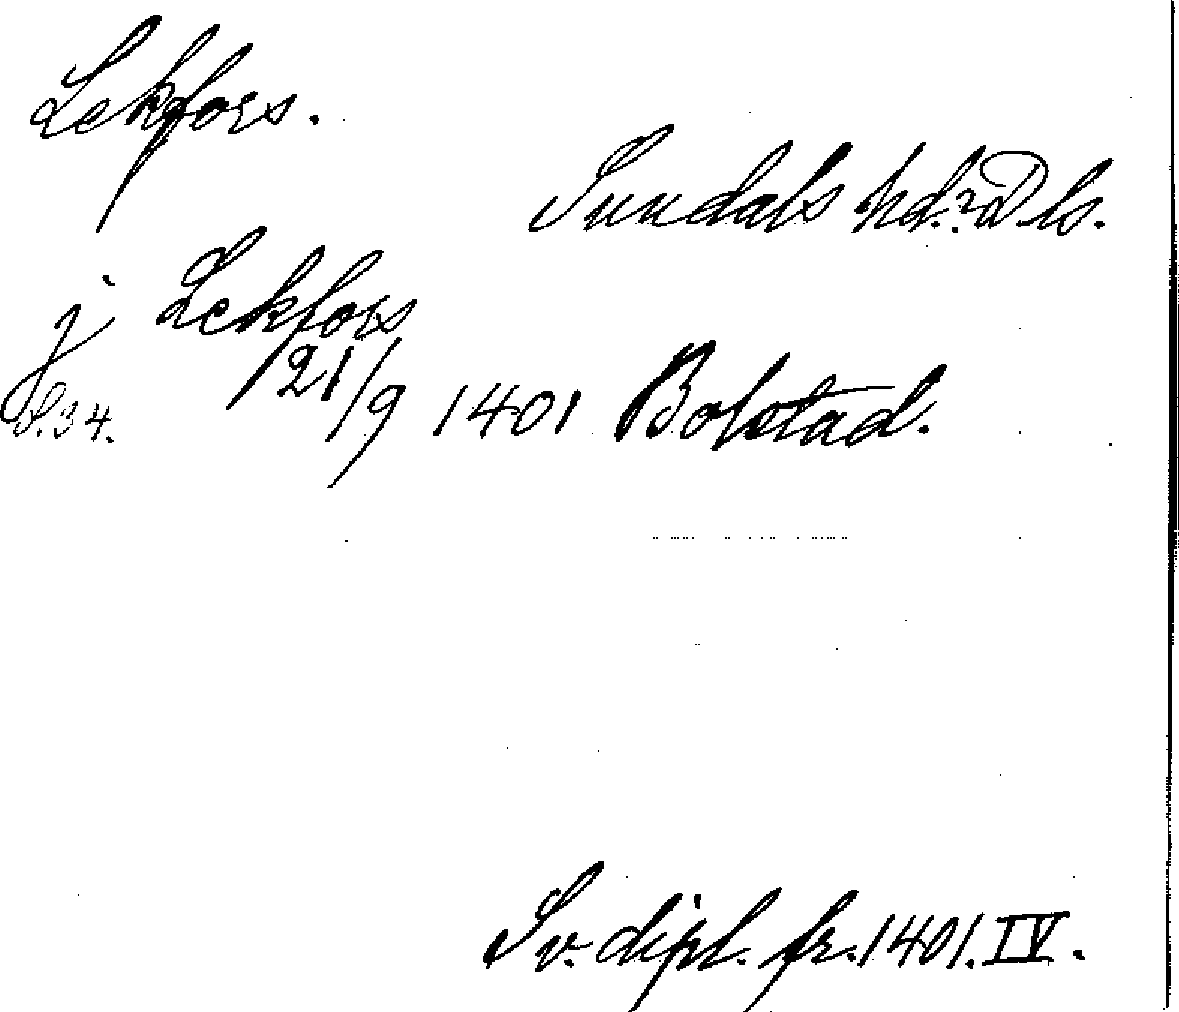 Lekfors.
Sundals hd.? Dls.
j Lekfors
s. 34. 21/9 1401 Bolstad.
Sv. dipl. fr. 1401. IV.